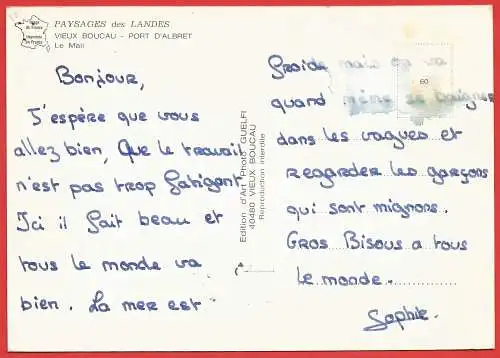 PAYSAGES des LANDES
VIEUX BOUCAU - PORT D'ALBRET
Le Mail
Bonjour,
J'espère que vous
allez bien, Que le travail
n'est pas trop fatigant
Ici il fait beau et
tous le monde va
bien. La mer est
Edition d'Art Photo GUELFI
40480 VIEUX BOUCAU
Reproduction interdite
60
Froide mais on va
quand même se baigner
dans les vagues et
regarder les garçons
qui sont mignons.
Gros Bisous a tous
le monde.
Sophie.